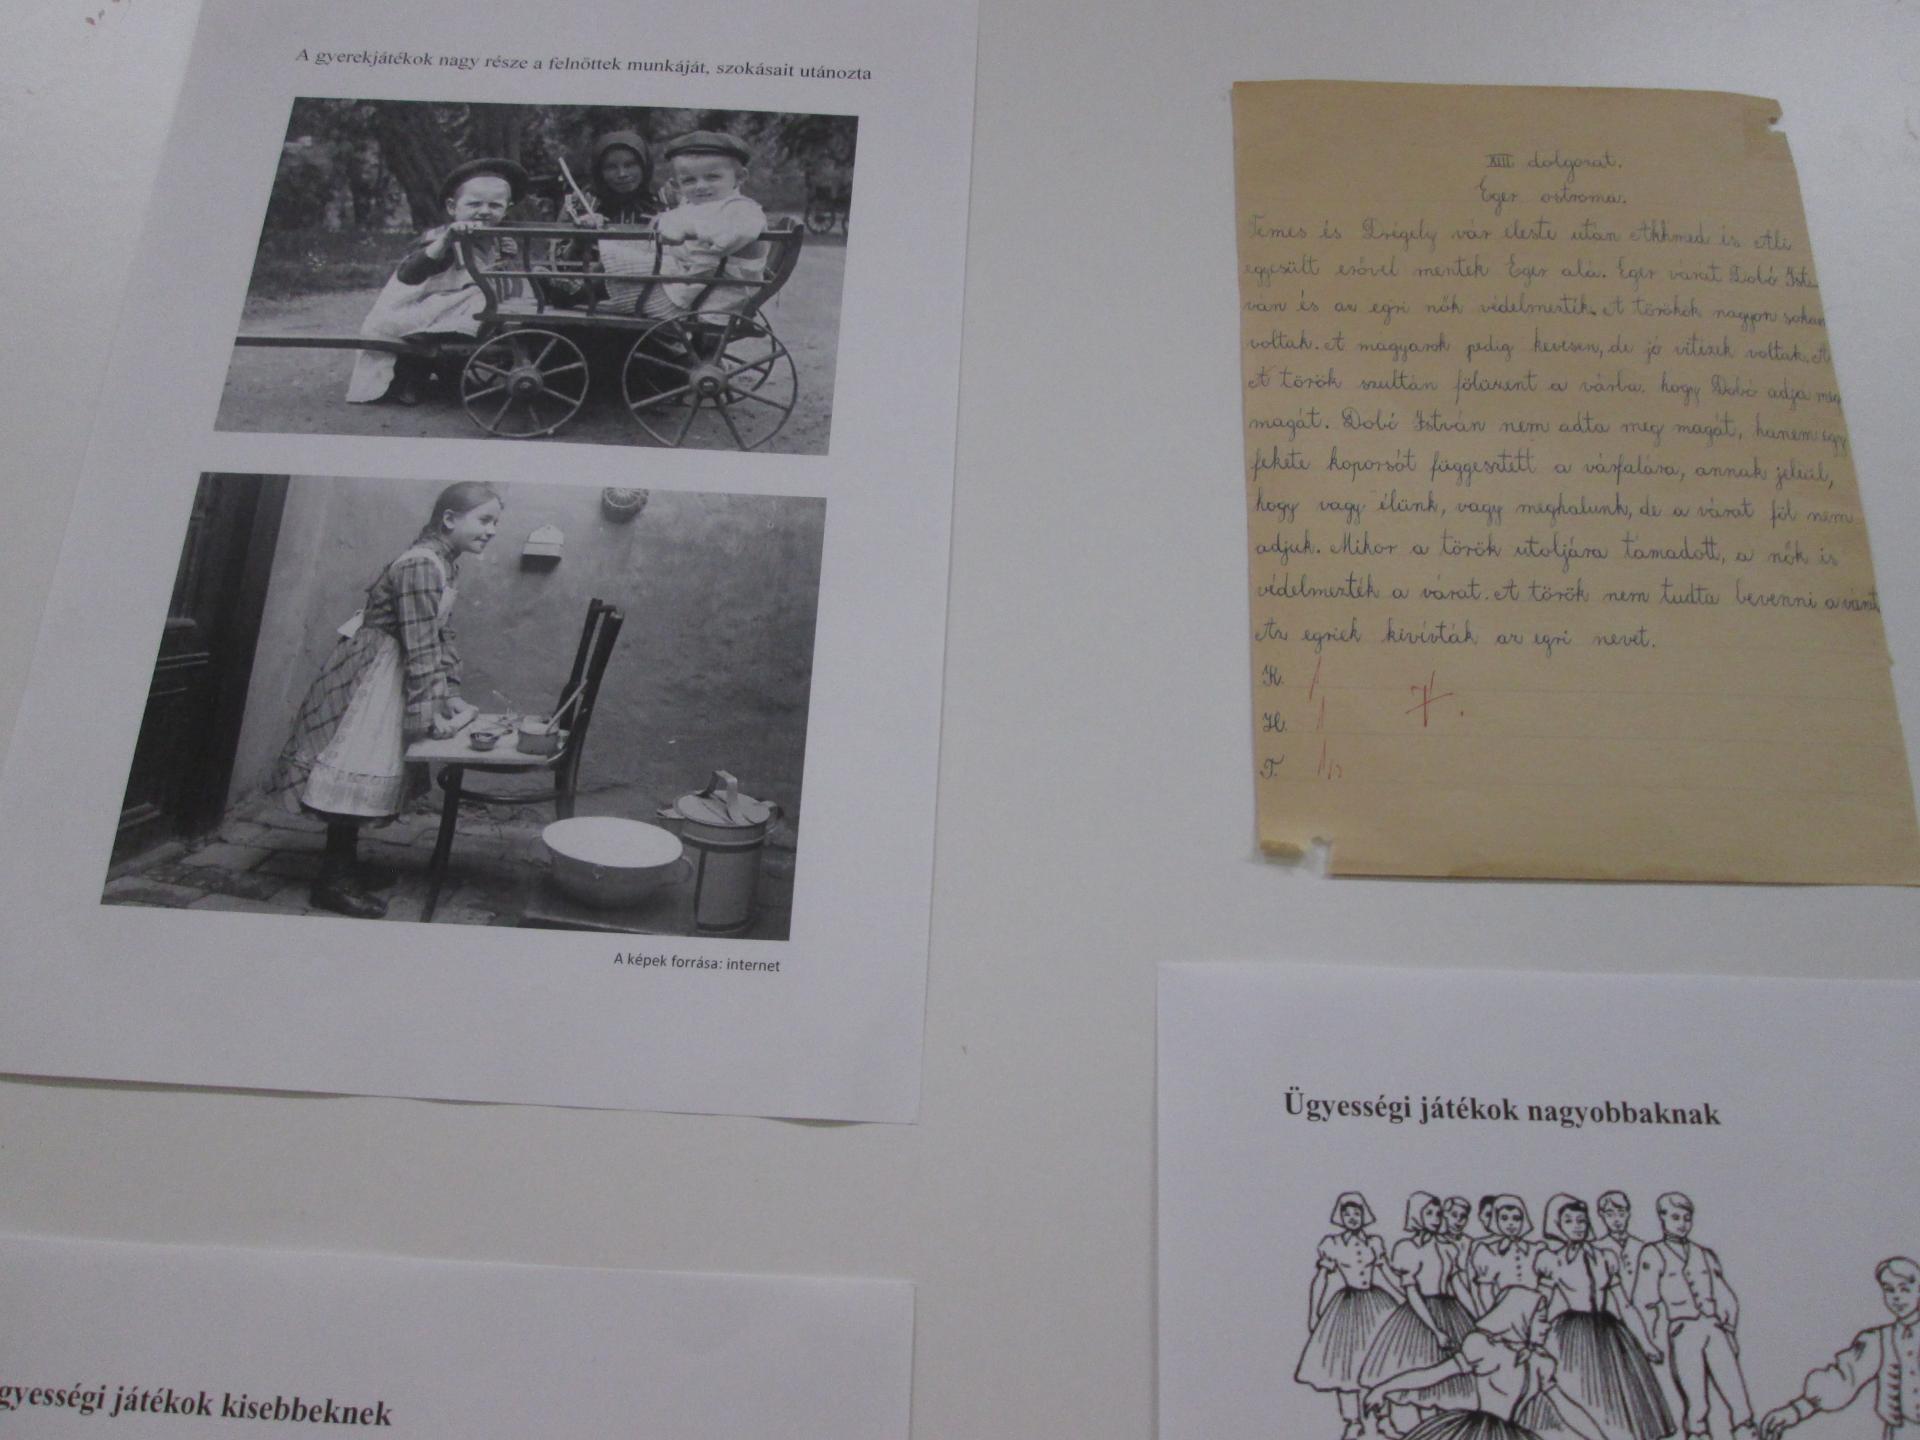 A gyerekjátékok nagy része a felnőttek munkáját, szokásait utánozta
A képek forrása: internet
XIII dolgozat.
Eger ostroma.
Temes és Drégely vár eleste után Ahhmed és Ali
egyesült erővel mentek Eger alá. Eger várát Dobó Ist
ván és az egri nők védelmezték. A törökök nagyon sokan
voltak. A magyarok pedig kevesen, de jó vitézek voltak. A
A török szultán fölüzent a várba, hogy Dobó adja meg
magát. Dobó István nem adta meg magát, hanem egy
fekete koporsót függesztett a várfalára, annak jeléül,
hogy vagy élünk, vagy meghalunk, de a várat föl nem
adjuk. Mikor a török utoljára támadott, a nők is
védelmezték a várat. A török nem tudta bevenni a várat
Az egriek kivívták az egri nevet.
K. 1
H. 1
T. 1/2
Ügyességi játékok nagyobbaknak
gyességi játékok kisebbeknek